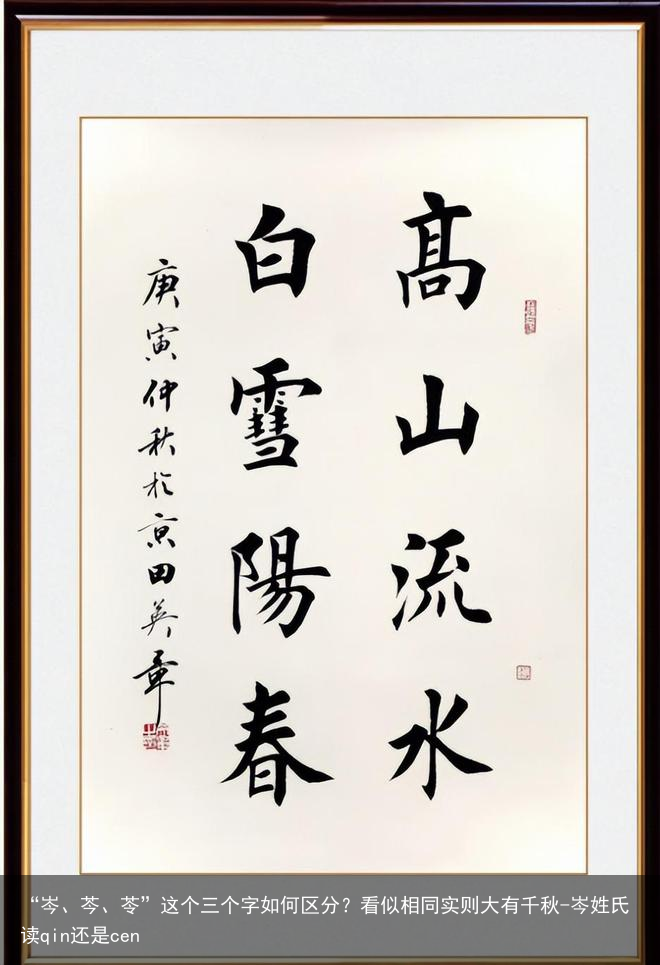 高山流水
白雪陽春
庚寅仲秋於京田英章
“岑、芩、苓”这个三个字如何区分？看似相同实则大有千秋-岑姓氏
读qin还是cen